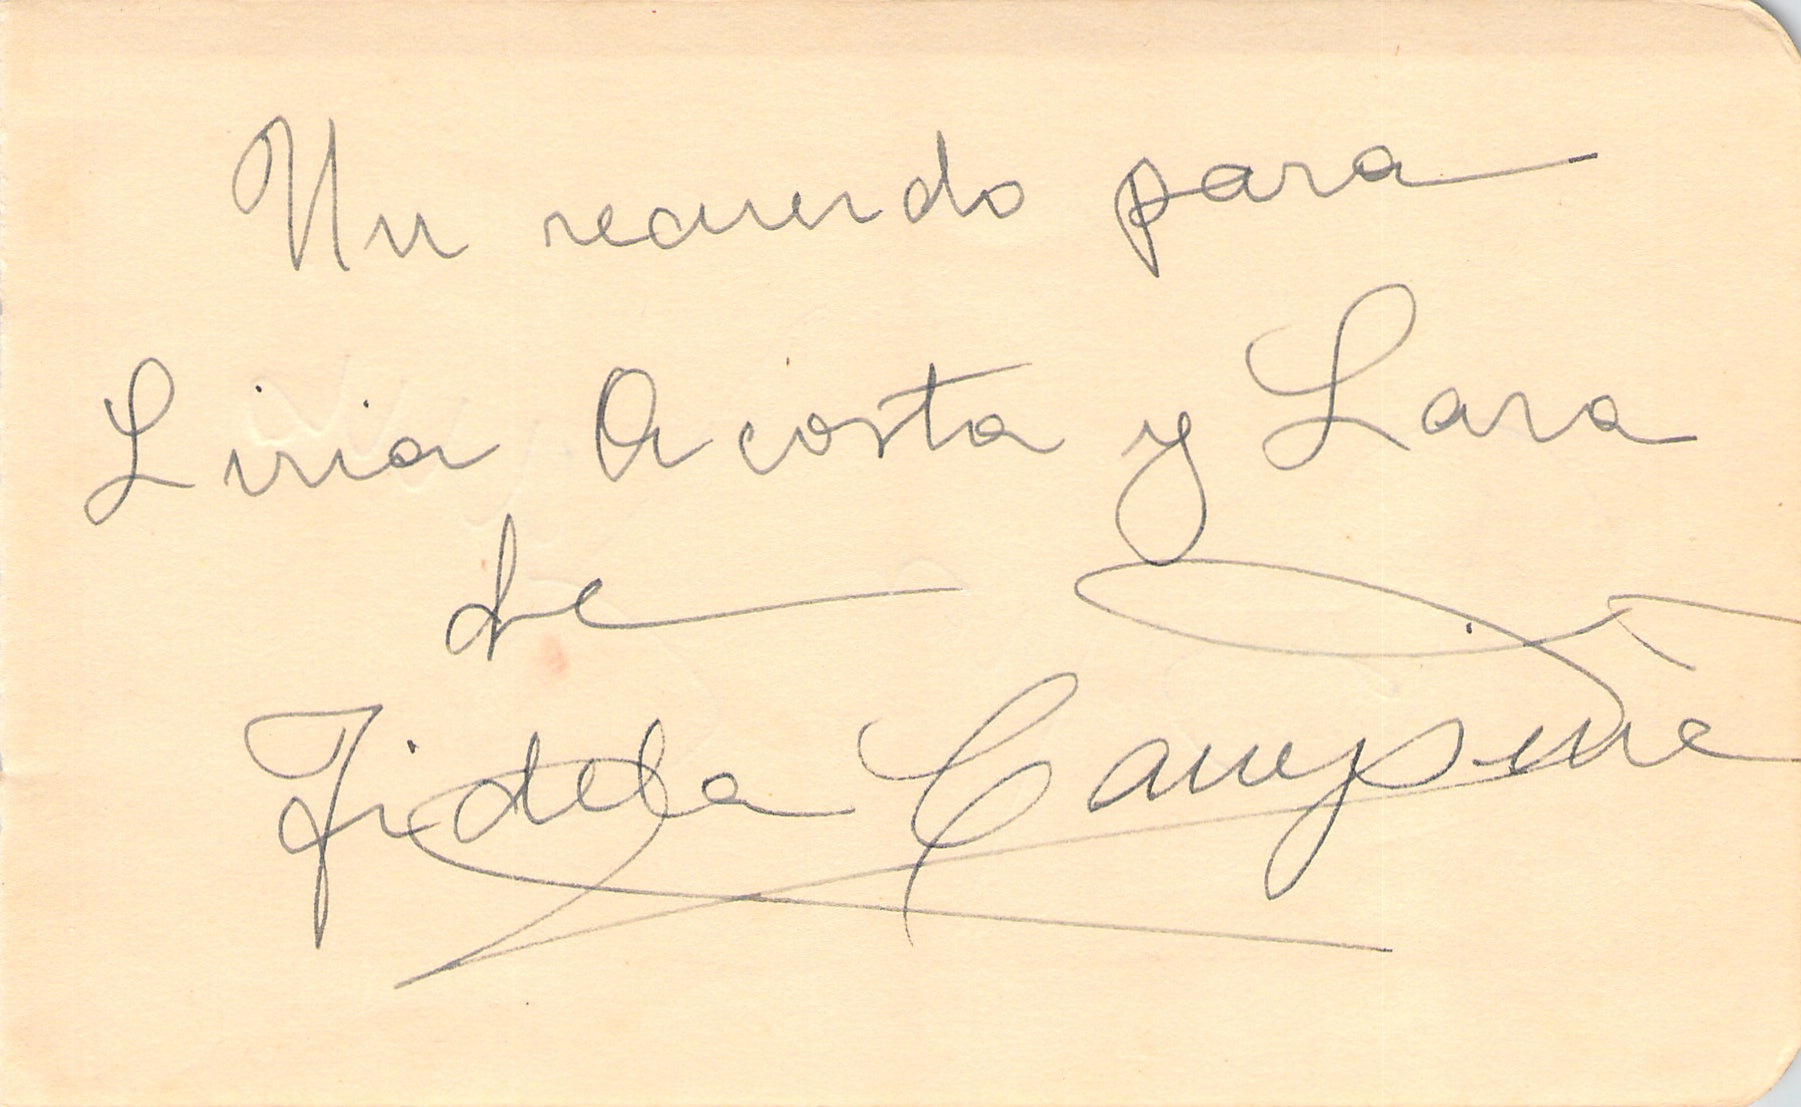 Un recuerdo para
Liria Acosta y Lara
de
Fidela Campiña